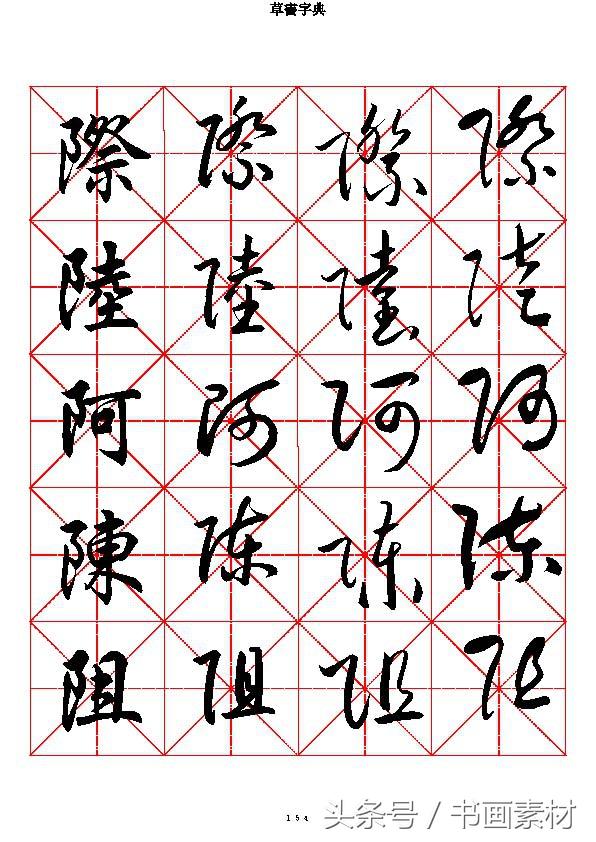 草書字典
際 際 際 際
陸 陸 陸 陸
阿 阿 阿 阿
陳 陳 陳 陳
阻 阻 阻 阻
154
头条号 / 书画素材